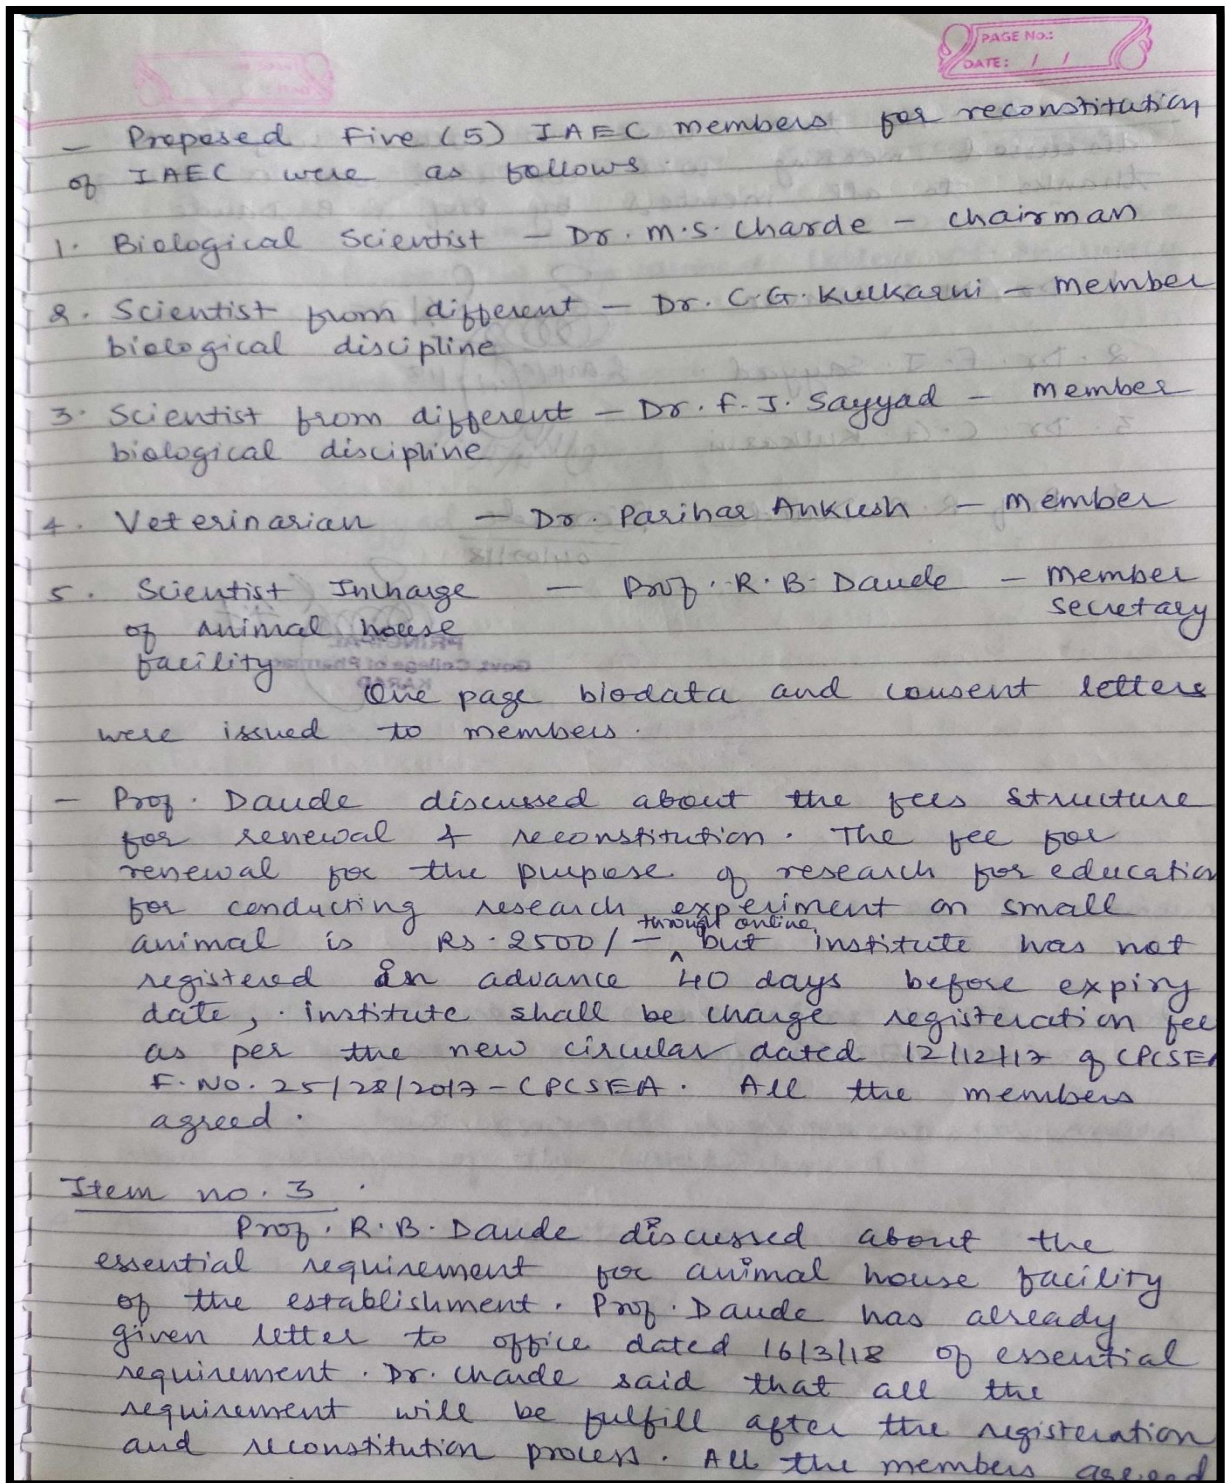 PAGE No.:
DATE: / /
- Proposed Five (5) IAEC members for reconstitution
of IAEC were as follows.
1. Biological Scientist - Dr. M.S. Charde - Chairman
2. Scientist from different - Dr. C.G. Kulkarni - Member
biological discipline
3. Scientist from different - Dr. F.J. Sayyad - Member
biological discipline
4. Veterinarian - Dr. Parihar Ankush - Member
5. Scientist Incharge - Prof. R.B. Daude - Member
of animal house secretary
facility
One page biodata and consent letters
were issued to members.
- Prof. Daude discussed about the fees structure
for renewal & reconstitution. The fee for
renewal for the purpose of research for education
for conducting research experiment on small
through online
animal is Rs. 2500/- ^ but institute has not
registered in advance 40 days before expiry
date, institute shall be charge registeration fee
as per the new circular dated 12/12/17 of CPCSEA
F. No. 25/28/2017-CPCSEA. All the members
agreed.
Item no. 3.
Prof. R.B. Daude discussed about the
essential requirement for animal house facility
of the establishment. Prof. Daude has already
given letter to office dated 16/3/18 of essential
requirement. Dr. Charde said that all the
requirement will be fulfill after the registeration
and reconstitution process. All the members agreed